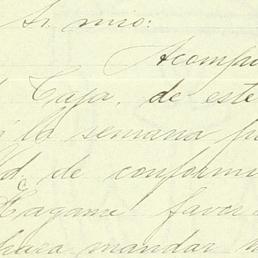 Sr mio:
Acompa
Caja, de este
la semana p
d, de conformi
Hágame favor
mandar